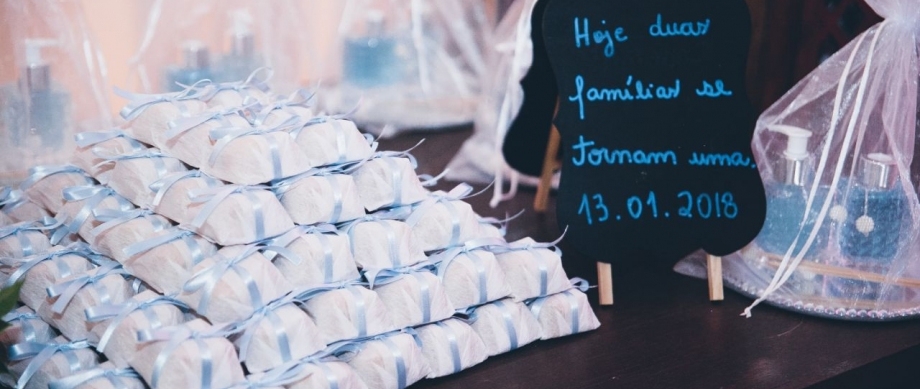 Hoje duas
famílias se
Tornam uma.
13.01.2018